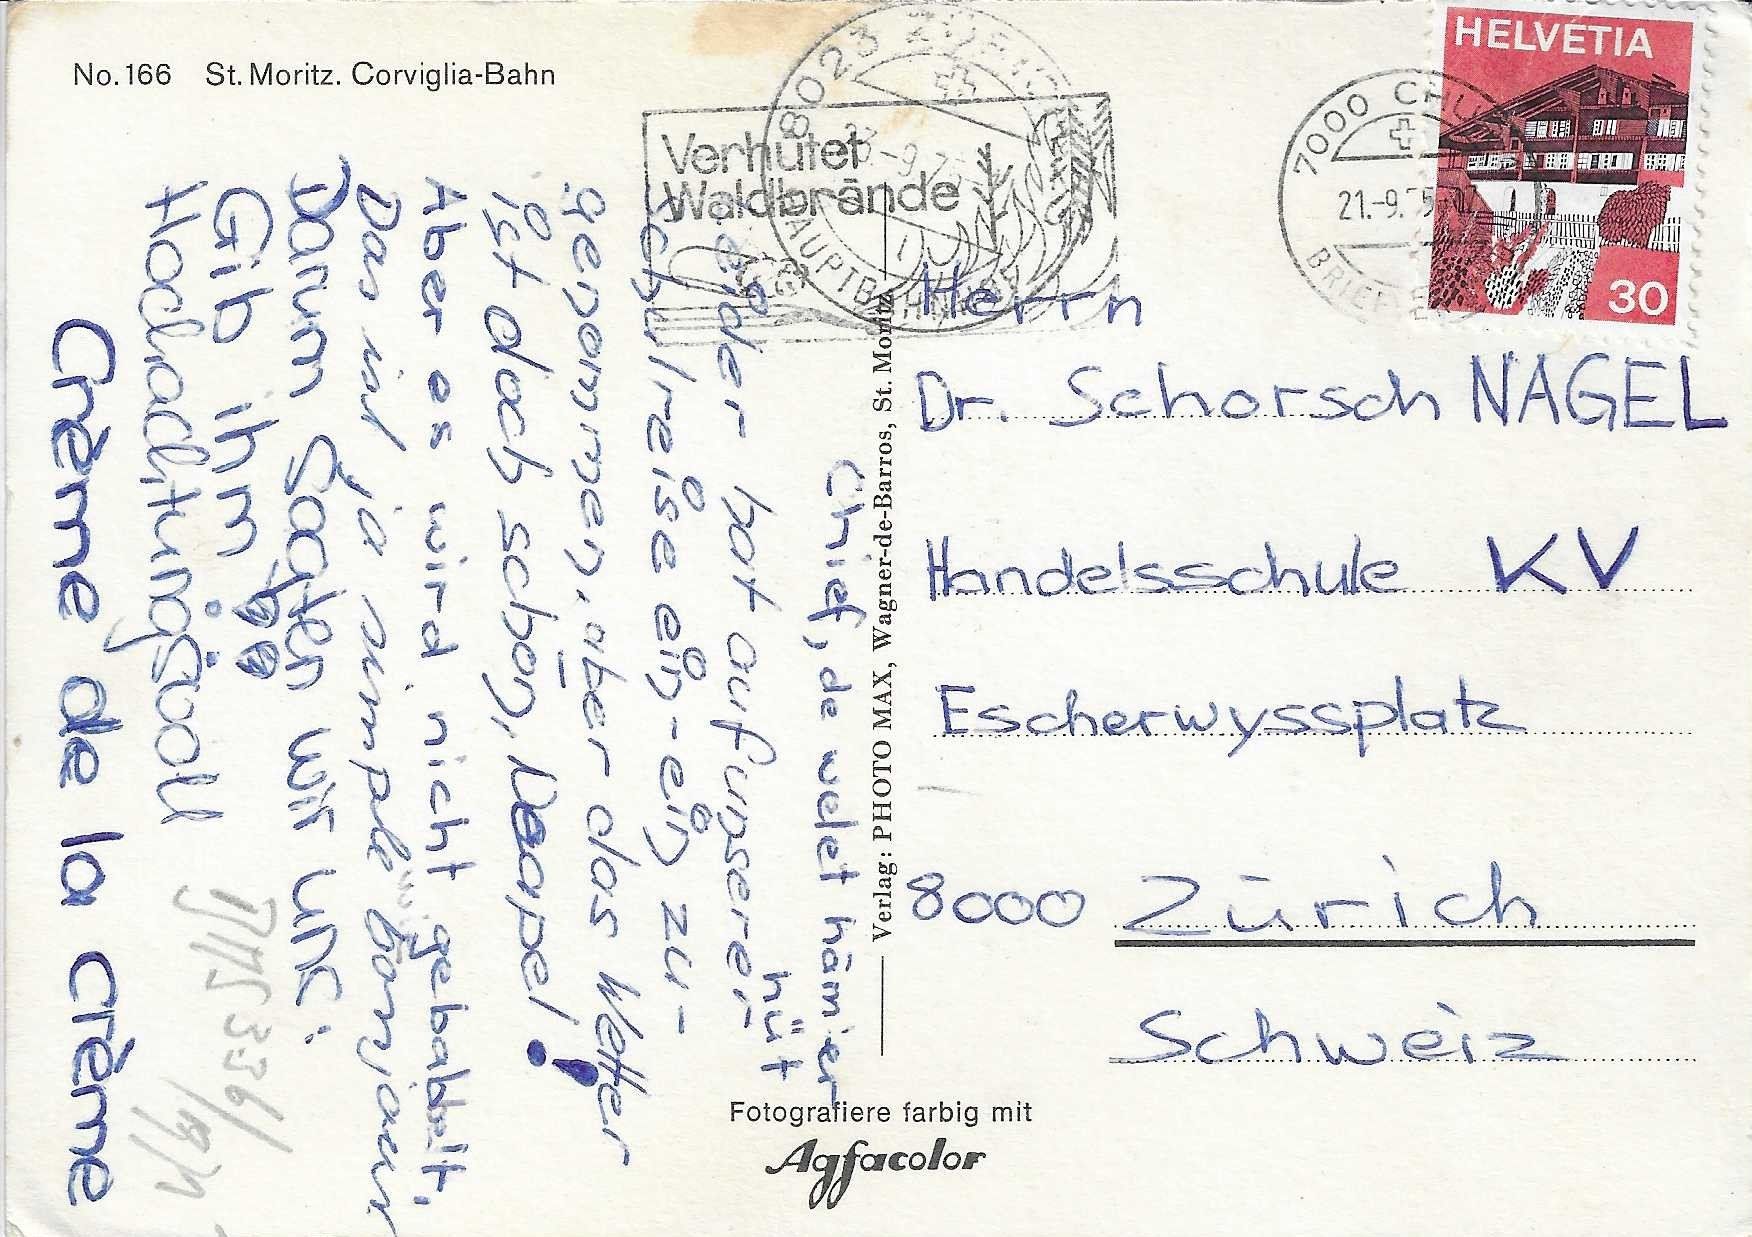 No. 166 St. Moritz. Corviglia-Bahn
Verhütet
Waldbrände
8023 ZÜRICH
23.-9.75
HAUPTBAHNHOF
7000 CHUR
21.-9.75
BRIEF
HELVETIA
30
Herrn
Dr. Schorsch NAGEL
Handelsschule KV
Escherwyssplatz
8000 Zürich
Schweiz
Chief, de welet hämier
hüt
eider hat auf unserer
Schulreise ein-ein zu-
genommen, aber das Wetter
ist doch schon, Neapel!
Aber es wird nicht gebabelt,
Das ist ja simple Bonjour
Darum sagten wir uns:
Gib ihm
Hochachtungsvoll
Crème de la crème
Verlag: PHOTO MAX, Wagner-de-Barros, St. Moritz
Fotografiere farbig mit
Agfacolor